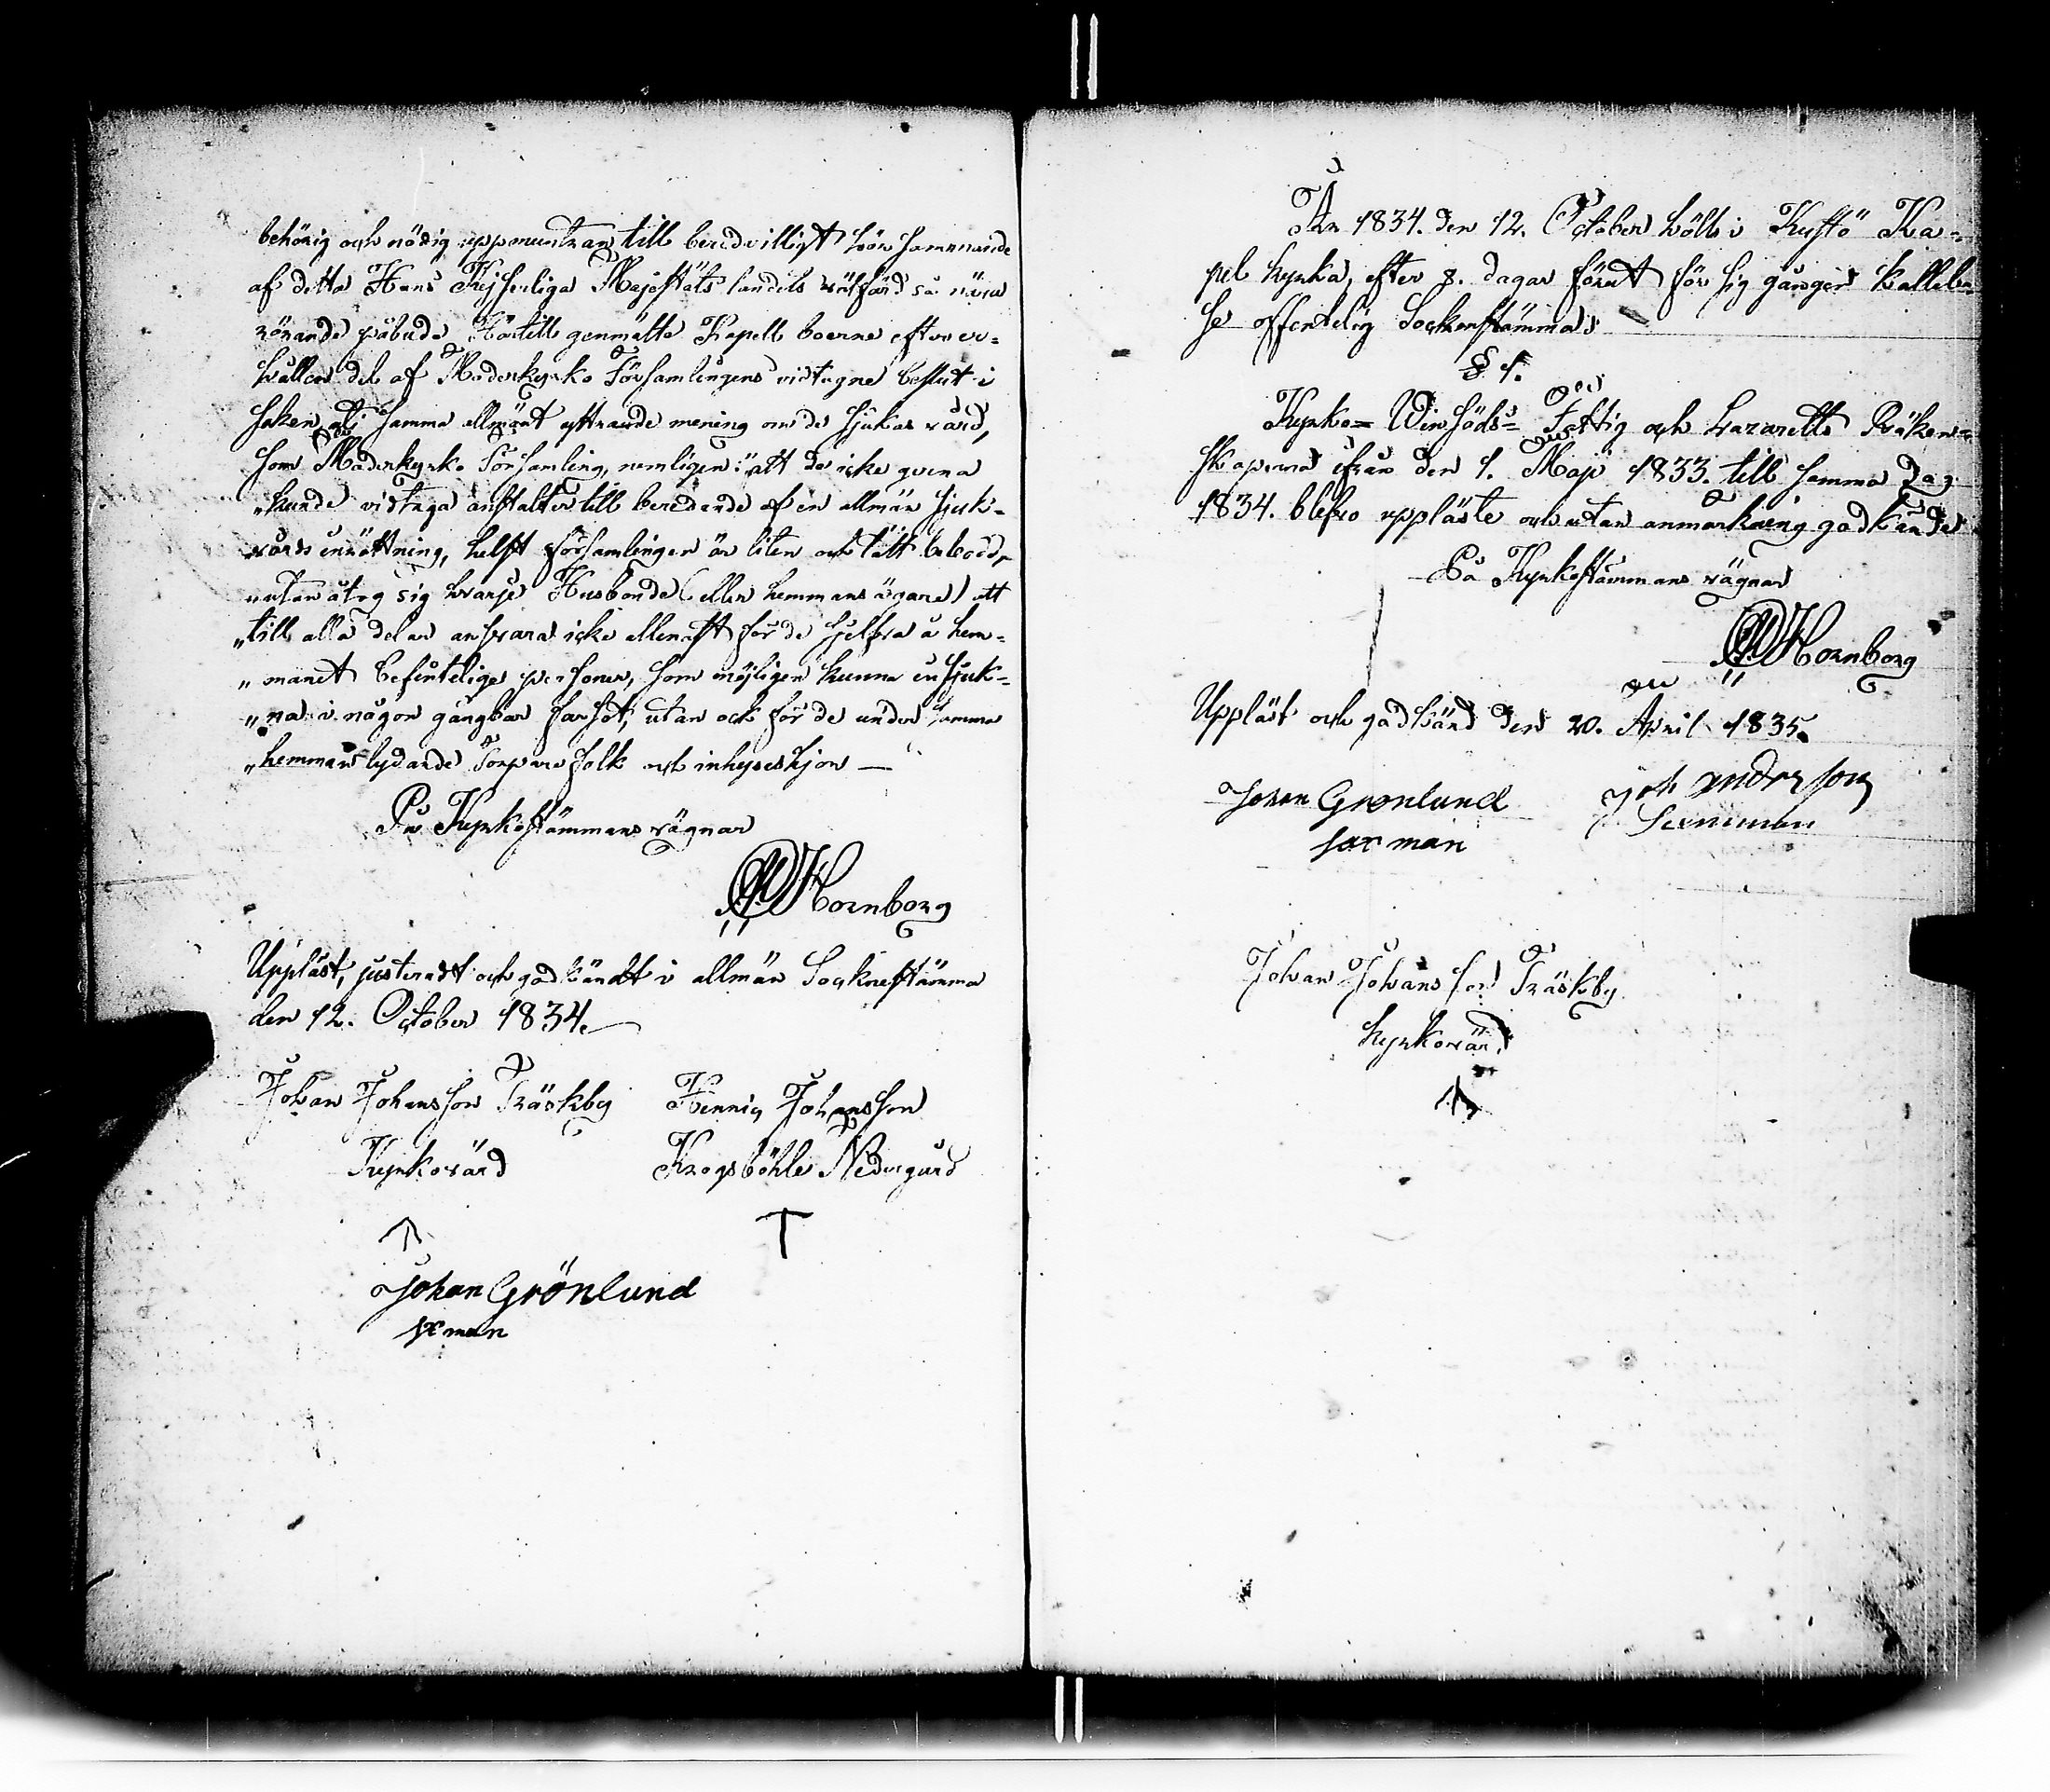 behörig och nödig uppmuntran till beredvilligt hörsammande
af detta Hans Kejserliga Majestäts landets välfärd så nära
rörande påbud. Härtill genmälte Kapell boerne efter er-
hållen del af Moderkyrko Församlingens vidtagne beslut i
saken, att samma allmänt yttrande mening om de sjukas vård,
som Moderkyrko Församling, nemligen: "att de icke gerna
"kunde vidtaga anstalter till beredande af en allmän sjuk-
vårds inrättning, helst församlingen är liten och tätt bebodd,
"utan åtog sig hvarje Husbonde (eller hemmans ägare) att
"till alla delar ansvara icke allenast för de sjelfva å hem-
"manet befintelige personer, som möjligen kunna insjuk-
"na i någon gångbar farsot, utan ock för de under samma
"hemman lydande Torpare folk och inhyseshjon —"
På Kyrkostämmans vägnar
Hornborg
Uppläst, justeradt och godkändt i allmän Socknestämma
den 12. October 1834.
Johan Johansson Träskby Hennig Johansson
Kyrkovärd Krogsböhle Nedergård
Johan Grönlund
sxman
År 1834. den 12. October hölls i Kustö Ka-
pel kyrka, efter 8. dagar förut för sig gången kallel-
se offentelig Sockenstämma:
§ 1.
Kyrko- Winsäds- Fattig och Lazaretts Räken-
skaperna ifrån den 1. Maji 1833. till samma dag
1834. blefvo uppläste och utan anmärkning godkände.
På Kyrkostämmans vägnar
Hornborg
Uppläst och godkänd den 20. April 1835.
Johan Grönlund Joh Anderson
sexman Sexman
Johan Johansson Träskby
kyrkovärd